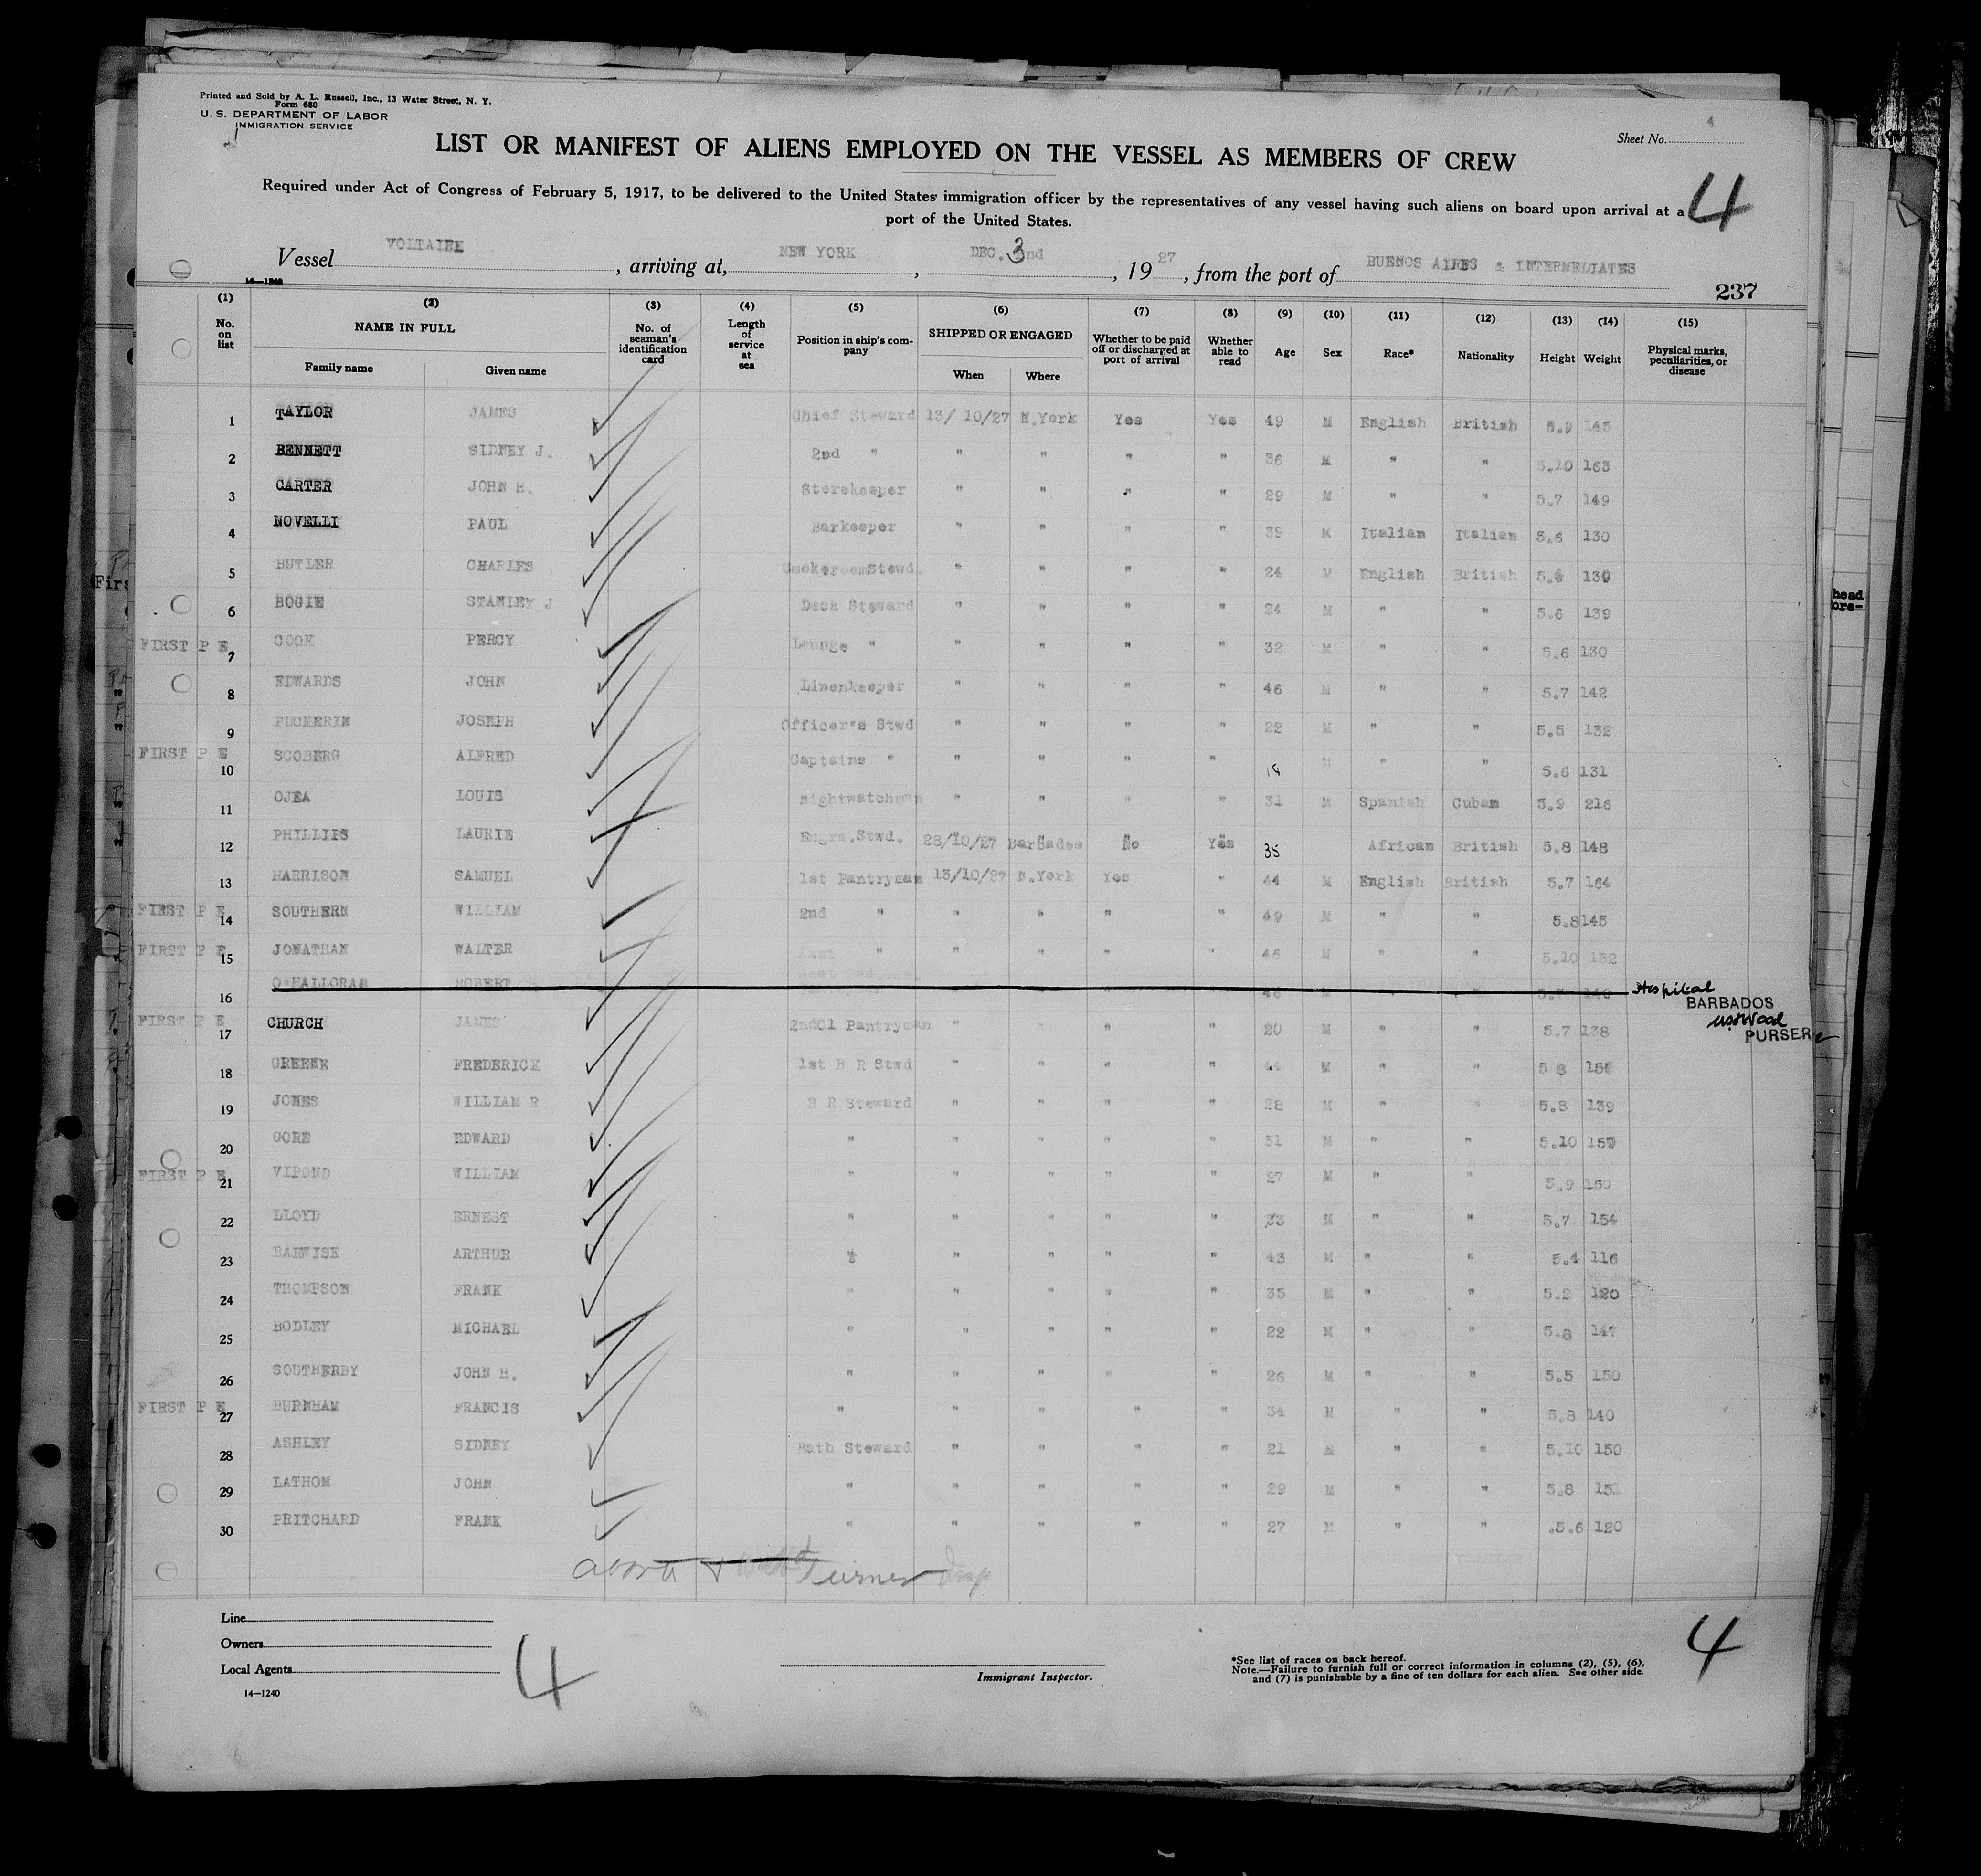 Printed and Sold by A. L. Russell, Inc., 13 Water Street, N. Y.
Form 680
U. S. DEPARTMENT OF LABOR
IMMIGRATION SERVICE
Sheet No. 4
LIST OR MANIFEST OF ALIENS EMPLOYED ON THE VESSEL AS MEMBERS OF CREW
Required under Act of Congress of February 5, 1917, to be delivered to the United States immigration officer by the representatives of any vessel having such aliens on board upon arrival at a
port of the United States.
4
Vessel VOLTAIRE, arriving at, NEW YORK, DEC. 3nd, 1927, from the port of BUENOS AIRES & INTERMEDIATES
14—1240
237
(1) (2) (3) (4) (5) (6) (7) (8) (9) (10) (11) (12) (13) (14) (15)
No. on list NAME IN FULL Family name Given name No. of seaman's identification card Length of service at sea Position in ship's company SHIPPED OR ENGAGED When Where Whether to be paid off or discharged at port of arrival Whether able to read Age Sex Race* Nationality Height Weight Physical marks, peculiarities, or disease
1 TAYLOR JAMES Chief Steward 13/10/27 N.York Yes Yes 49 M English British 5.9 145
2 BENNETT SIDNEY J. 2nd " " " " " 36 M " " 5.10 163
3 CARTER JOHN H. Storekeeper " " " " 29 M " " 5.7 149
4 NOVELLI PAUL Barkeeper " " " " 39 M Italian Italian 5.6 130
5 BUTLER CHARLES SmokeroomStewd. " " " " 24 M English British 5.6 130
6 BOGIE STANLEY J Deck Steward " " " " 24 M " " 5.6 139
FIRST P E 7 COOK PERCY Lounge " " " " " 32 M " " 5.6 130
8 EDWARDS JOHN Linenkeeper " " " " 46 M " " 5.7 142
9 PUCKERIN JOSEPH Officer's Stwd " " " " 22 M " " 5.5 132
FIRST P E 10 SCOBERG ALFRED Captains " " " " " 19 M " " 5.6 131
11 OJEA LOUIS Nightwatchman " " " " 31 M Spanish Cuban 5.9 216
12 PHILLIPS LAURIE Engrs.Stwd. 28/10/27 Barbados No Yes 35 African British 5.8 148
13 HARRISON SAMUEL 1st Pantryman 13/10/27 N.York Yes " 44 M English British 5.7 164
FIRST P E 14 SOUTHERN WILLIAM 2nd " " " " " 49 M " " 5.8 145
FIRST P E 15 JONATHAN WALTER Asst " " " " " 46 M " " 5.10 152
16 O'HALLORAN ROBERT " " 46 M 5.7 140 Hospital
BARBADOS
PURSER
FIRST P E 17 CHURCH JAMES 2ndCl Pantryman " " " 20 M " " 5.7 138
18 GREENE FREDERICK 1st B R Stwd " " " " 44 M " " 5 8 15
19 JONES WILLIAM R B R Steward " " " " 28 M " " 5.8 139
20 GORE EDWARD " " " " " 31 M " " 5.10 157
FIRST P E 21 VIPOND WILLIAM " " " " " 27 M " " 5.9 150
22 LLOYD ERNEST " " " " " 23 M " " 5.7 154
23 BARWISE ARTHUR " " " " " 43 M " " 5.4 116
24 THOMPSON FRANK " " " " " 35 M " " 5.2 120
25 BODLEY MICHAEL " " " " " 22 M " " 5.8 147
26 SOUTHERBY JOHN H. " " " " " 26 M " " 5.5 150
FIRST P E 27 BURNHAM FRANCIS " " " " " 34 M " " 5.8 140
28 ASHLEY SIDNEY Bath Steward " " " " 21 M " " 5.10 150
29 LATHOM JOHN " " " " " 29 M " " 5.8 151
30 PRITCHARD FRANK " " " " " 27 M " " 5.6 120
Turner
Line
Owners
Local Agents
14—1240
4
Immigrant Inspector.
*See list of races on back hereof.
Note.—Failure to furnish full or correct information in columns (2), (5), (6),
and (7) is punishable by a fine of ten dollars for each alien. See other side.
4